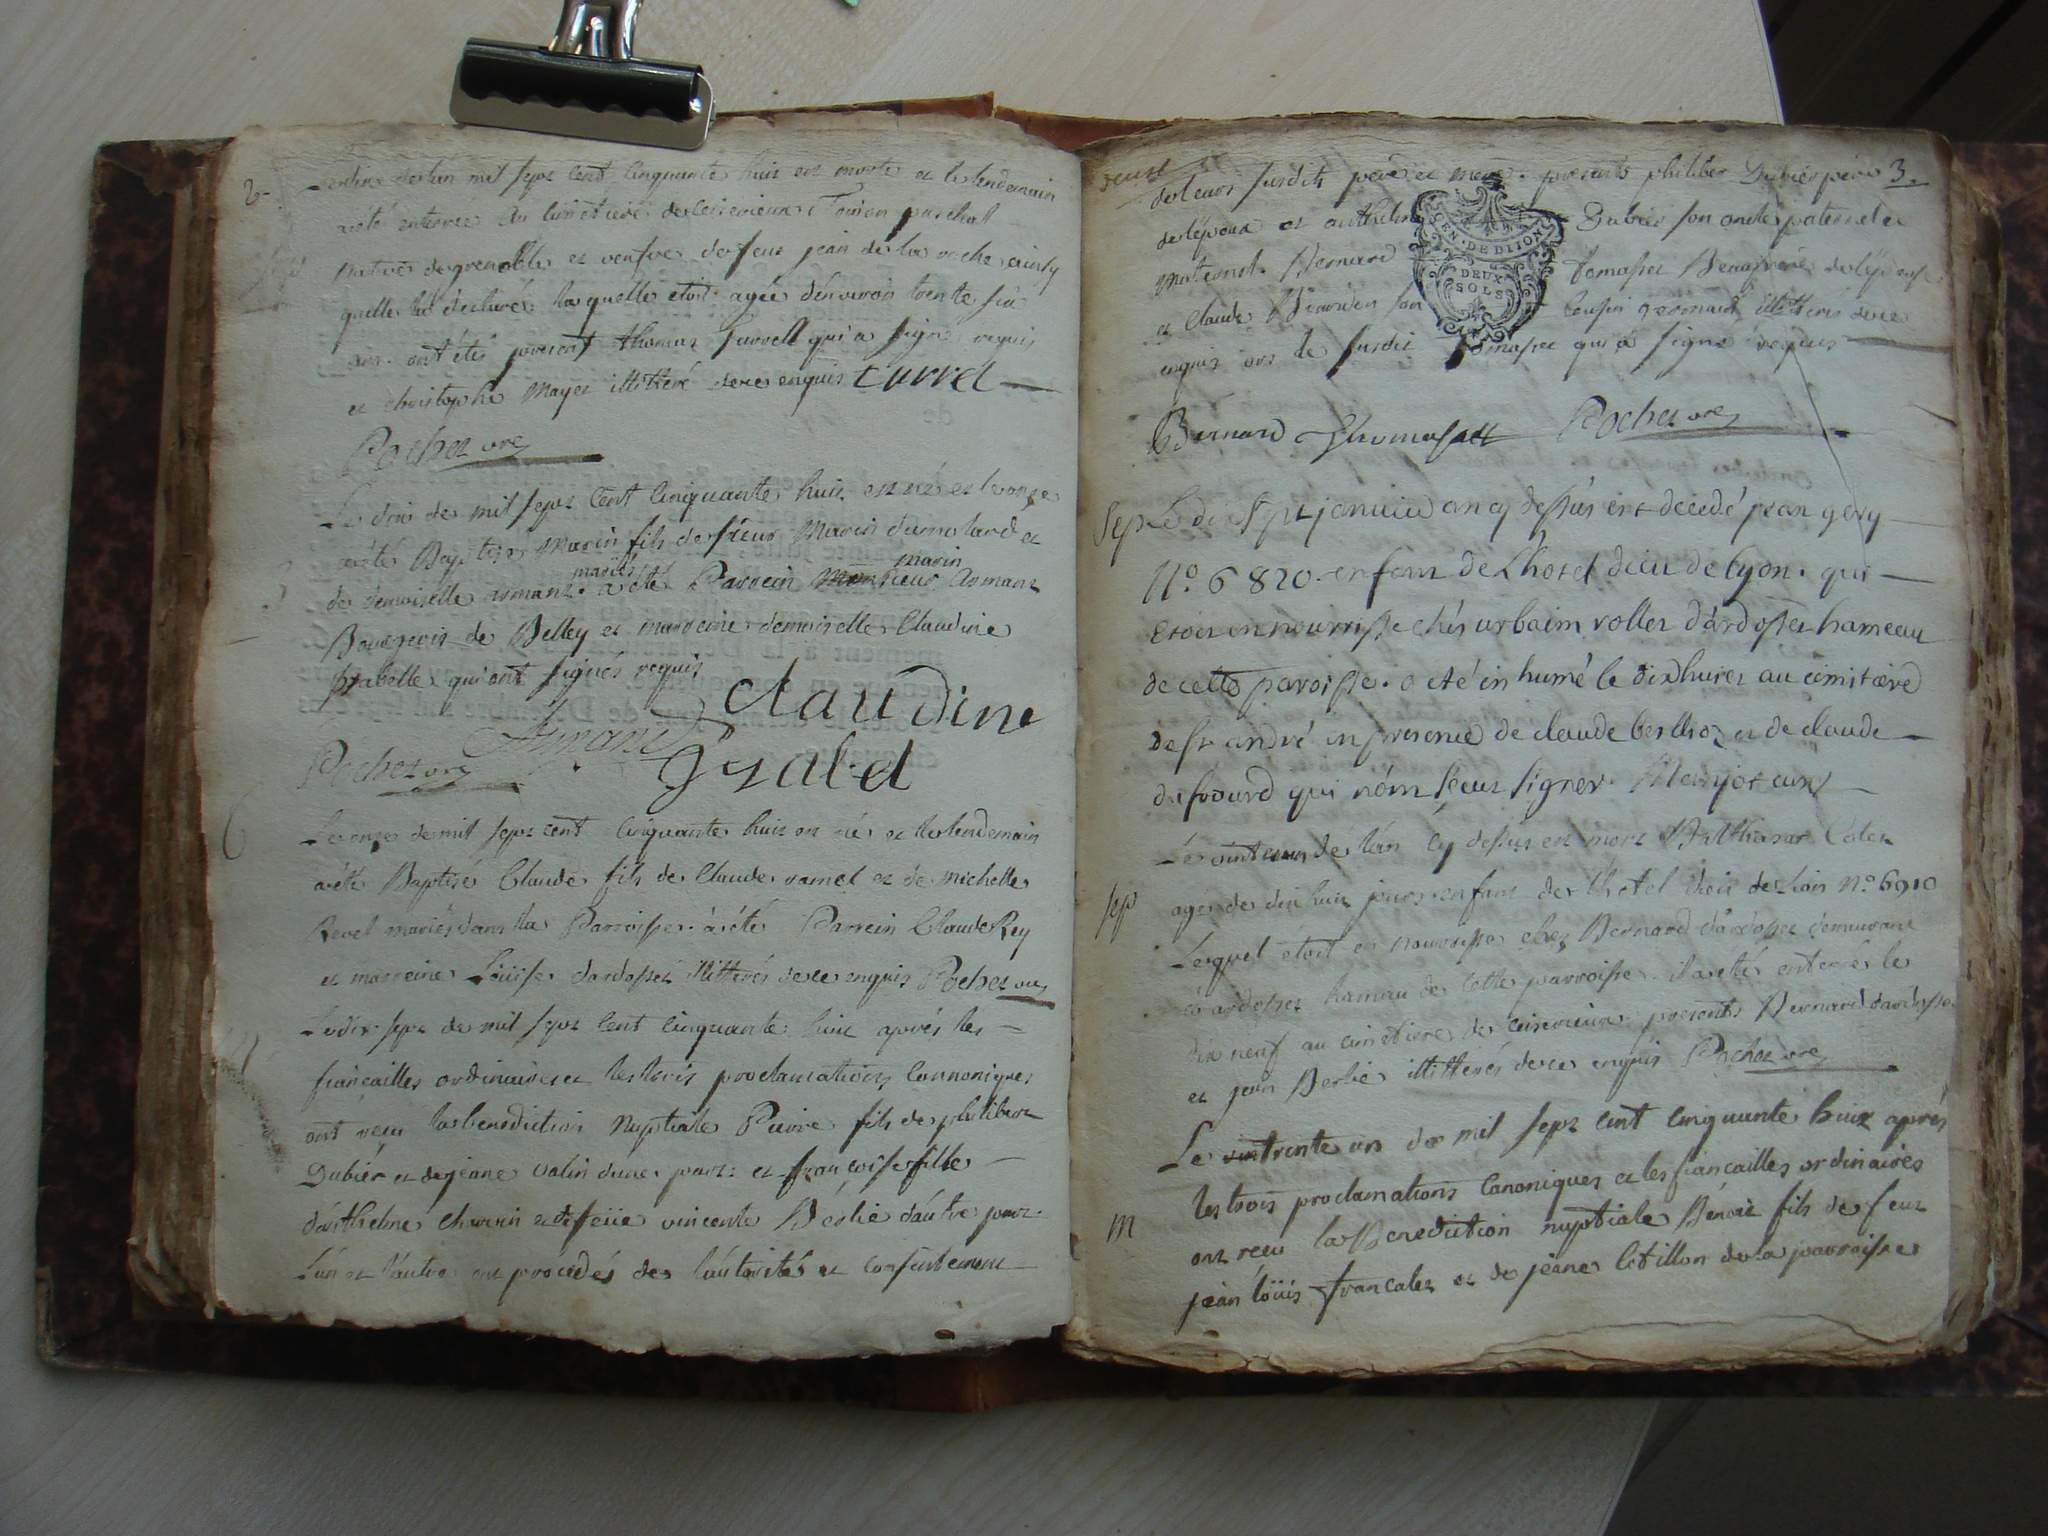 2
de l'an mil sept cent cinquante huit est morte et le lendemain
aété enterree au cimetiere de Ceiserieux
native de grenoble et veufve de feu jean de la roche ainsy
quelle la déclaré. laquelle etoit agée d'environ trente six
ans. ont étés present thomas Turrell qui a signé requis
et christophe mayer illitteré de ce enquis turrel
Rochez vre
Le dix de mil sept cent cinquante huit est né et le onze
aété Baptisé marin fils de sieur marin dumolard et
mariés marin
de demoiselle armant. a été Parrein monsieur Armant
Bourgeois de Belley et marreine demoiselle Claudine
ysabelle qui ont signés requis
claudine
Rochez vre Armant
ysabel
6
Le onze de mil sept cent cinquante huit est né et le lendemain
aété Baptisé Claude fils de Claude ramel et de michelle
Revel mariés dans la Parroisse. à été Parrein Claude Rey
et marreine Loüise dardosset illitterés de ce enquis Rochez vre
Le dix sept de mil sept cent cinquante huit aprés les
fiançailles ordinaires et les trois proclamations Cannoniques
ont reçu la benediction Nuptiale Pierre fils de philibert
Dubiér et de jeane valin d'une part: et françoise fille
d'antheline et de feüe vincente Béslie d'autre part.
L'un et l'autre ont procédés de l'autorité et consentement
3.
de leurs susdits pere et mere. presents philiber Dubiér pére
de l'époux et anthelme Dubier son oncle paternel et
GEN. DE DIJON
DEUX
SOLS
maternel. Bernard Tomasset Beaufrére de l'épouse
et Claude son Cousin germain illitterés de ce
enquis ors le susdit Tomasset qui a signé requis
Bernard Thomasset Rochez vre
Sep. Le di sept janvier an cy dessus est decedé jean gery
No. 6820 enfant de L'hotel dieu de Lyon. qui
etoit en nourrisse chés urbaim rollet d'ardosset hameau
de cette paroisse. a eté inhumé le dixhuict au cimitiere
de st. andré in presence de claude berlioz et de claude
dufrourd qui n'ont sceut signer.
Le vint de l'an cy dessus est mort Balthasar Colet
sep
agé de dix huit jours enfant de l'hotel dieu de Lion No. 6910
Lequel étoit en nourrisse chez Bernard d'ardosset demeurant
à ardosset hameau de cette parroisse. il a eté enterré le
dix neuf au cimetiere de ceiserieux presents Bernard dardosset
et jean Berlié illitterés de ce enquis Rochez vre
Le trente un de mil sept cent cinquante huit aprés
les trois proclamations Canoniques et les fiançailles ordinaires
m
ont reçu la Benediction nuptiale Bénoit fils de feu
jean loüis francalet et de jeane Cotillon de la parroisse